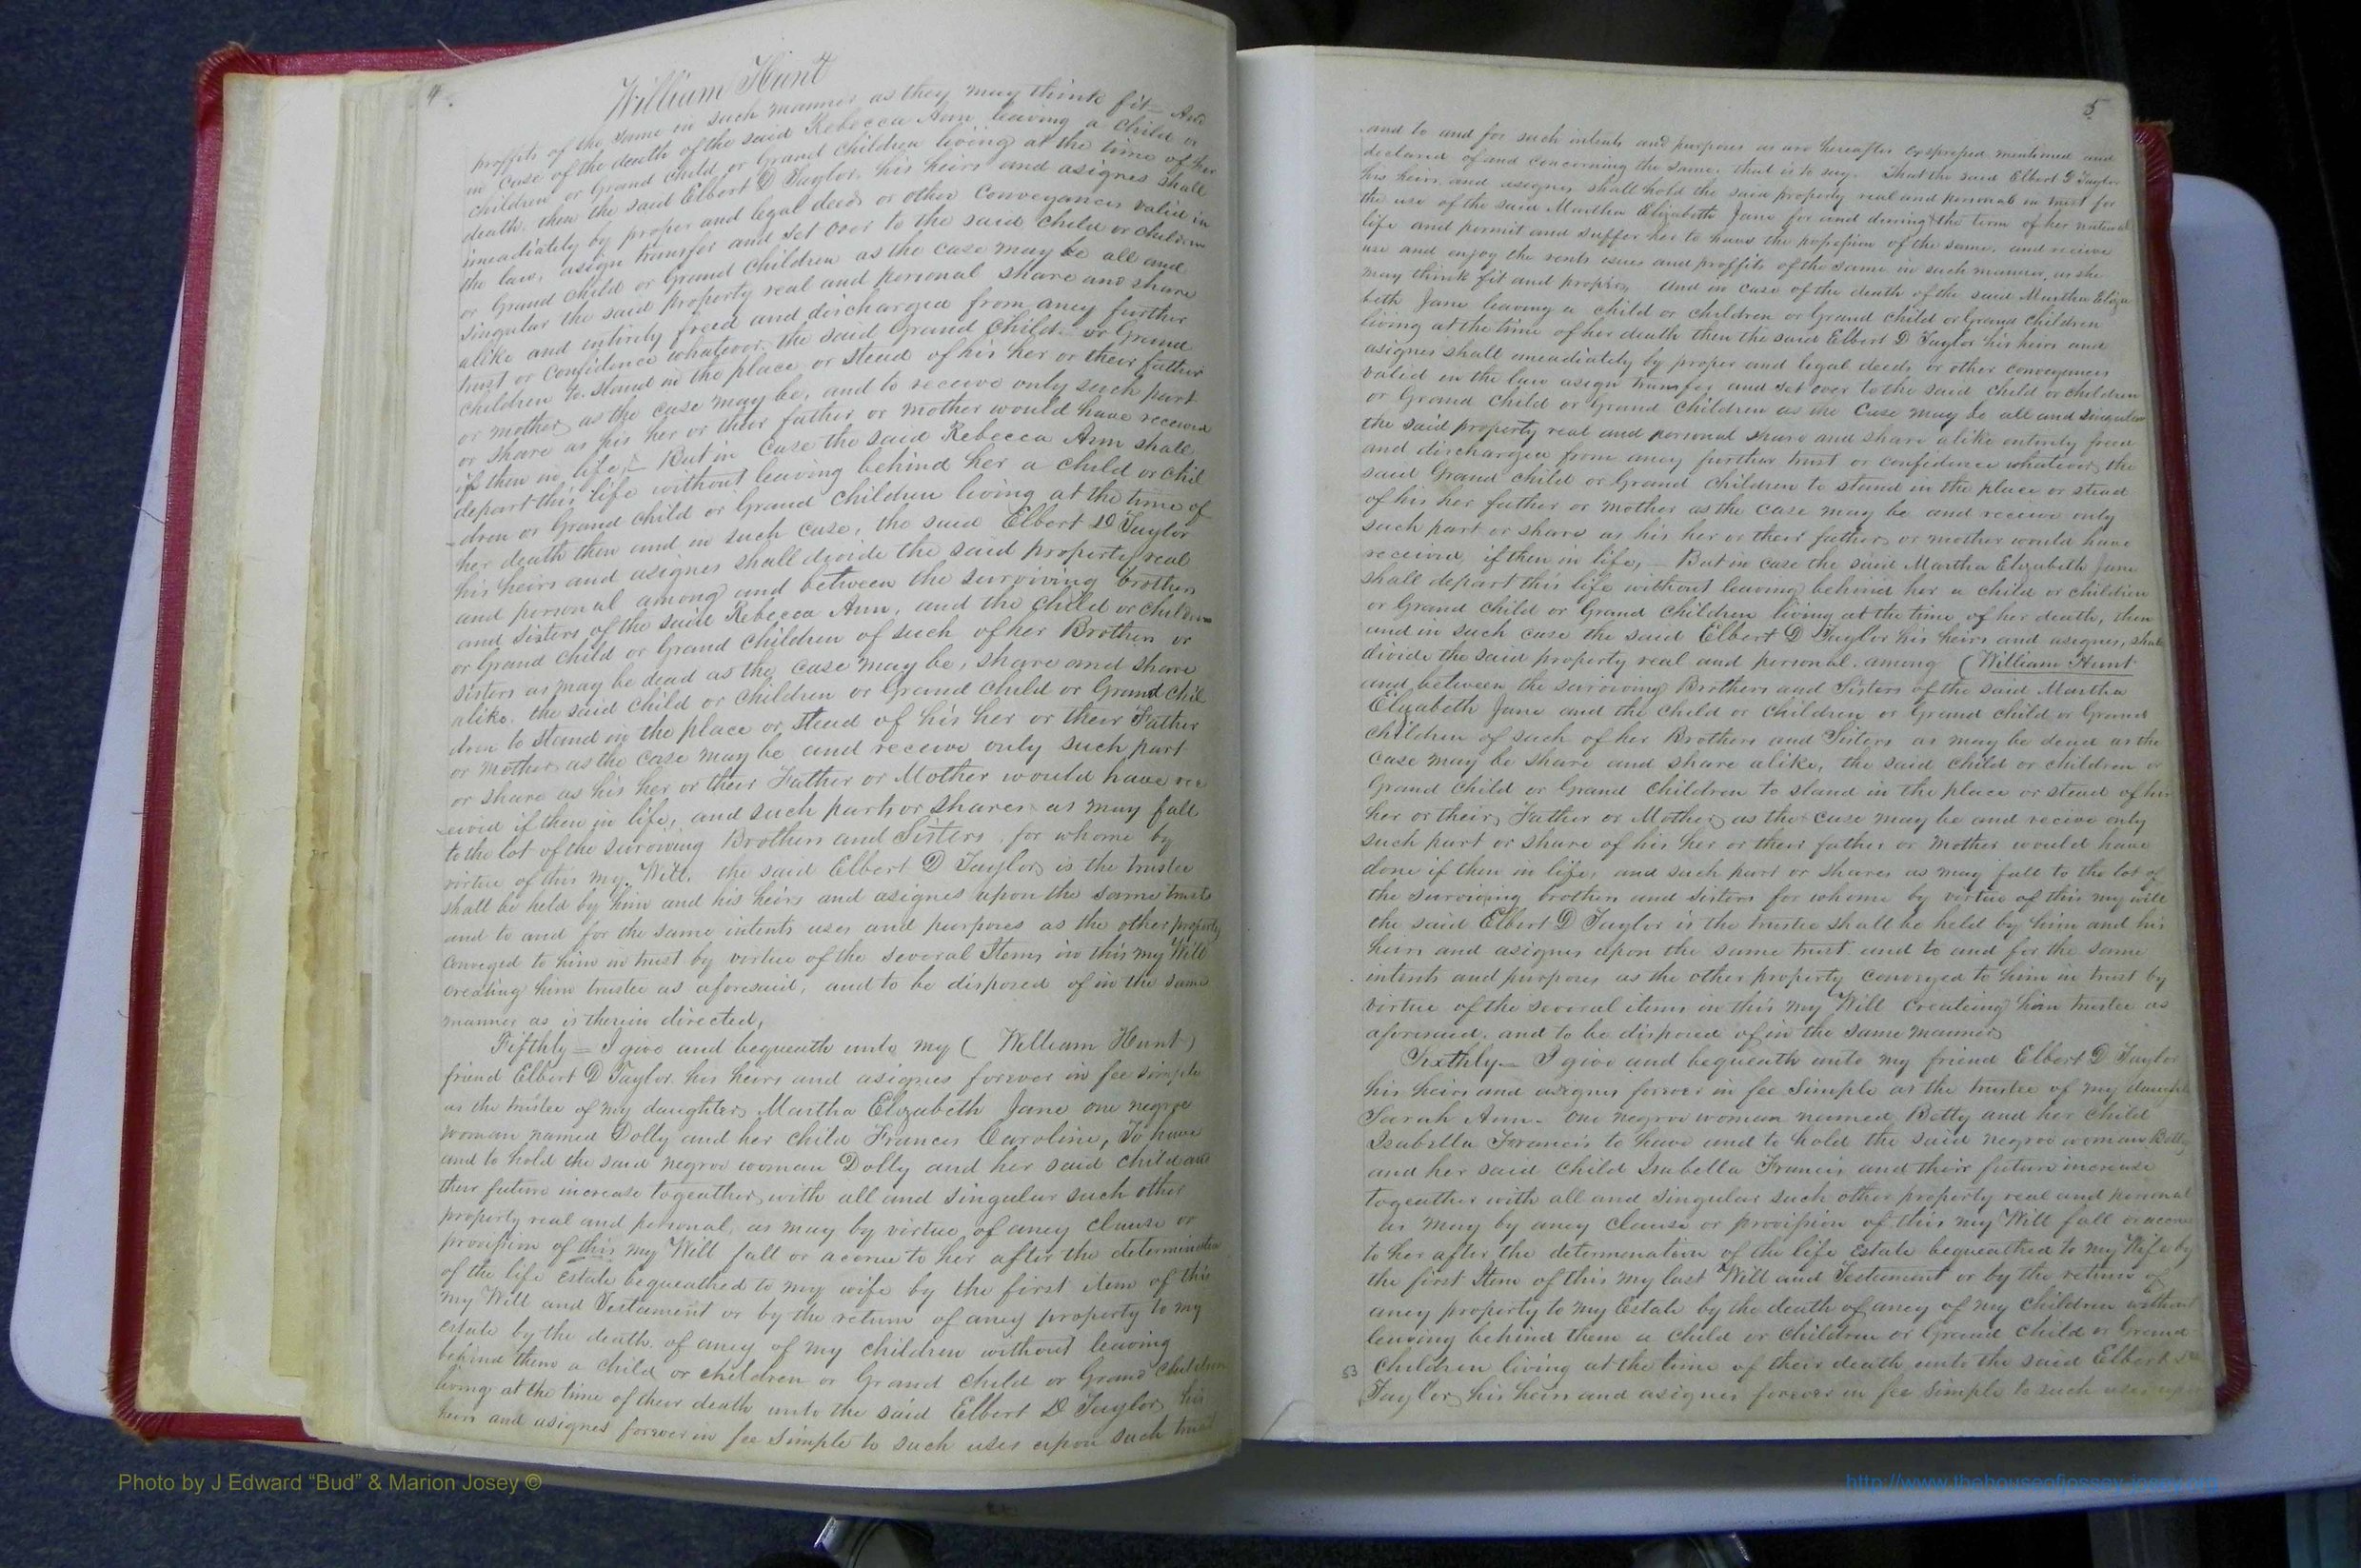 4.
William Hunt
proffits of the same in such manner as they may think fit = And
in case of the death of the said Rebecca Ann leaving a child or
children or Grand child or Grand children living at the time of her
death, then the said Elbert D Taylor, his heirs and asignes shall
imeadiately by proper and legal deeds or other conveyances valid in
the law, asign transfer and set over to the said child or children
or Grand child or Grand children as the case may be all and
singular the said property real and personal share and share
alike and entirely freed and discharged from aney further
trust or confidence whatever, the said Grand child or Grand
children to stand in the place or stead of his her or their father
or mother as the case may be, and to receive only such part
or share as his her or their father or mother would have received
if then in life, – But in case the said Rebecca Ann shall
depart this life without leaving behind her a child or chil
-dren or Grand child or Grand children living at the time of
her death then and in such case, the said Elbert D Taylor
his heirs and asignes shall devide the said property real
and personal among and between the surviving brothers
and sisters of the said Rebecca Ann, and the child or children
or Grand child or Grand children of such of her Brothers or
sisters as may be dead as the case may be, share and share
alike, the said child or children or Grand child or Grand chil
dren to stand in the place or stead of his her or their Father
or mother as the case may be and receive only such part
or share as his her or their Father or Mother would have rec
-eived if then in life, and such parts or shares as may fall
to the lot of the surviving Brothers and Sisters, for whome by
virtue of this my Will, the said Elbert D Taylor is the trustee
shall be held by him and his heirs and asignes upon the same trusts
and to and for the same intents uses and purposes as the other property
conveyed to him in trust by virtue of the several Items in this my Will
creating him trustee as aforesaid, and to be disposed of in the same
manner as is therein directed,
Fifthly = I give and bequeath unto my ( William Hunt )
friend Elbert D Taylor his heirs and asignes forever in fee simple
as the trustee of my daughter Martha Elizabeth Jane one negroe
woman named Dolly and her child Frances Caroline, To have
and to hold the said negroe woman Dolly and her said child and
their future increase togeather with all and singular such other
property real and personal, as may by virtue of aney clause or
provision of this my Will fall or acorue to her after the determination
of the life Estate bequeathed to my wife by the first item of this
my Will and Testament or by the return of aney property to my
estate by the death of aney of my children without leaving
behind them a child or children or Grand child or Grand children
living at the time of their death unto the said Elbert D Taylor his
heirs and asignes forever in fee simple to such uses upon such trust
5
and to and for such intents and purposes as are hereafter expressed mentioned and
declared of and concerning the same, that is to say. That the said Elbert D Taylor
his heirs and asignes shall hold the said property real and personal in trust for
the use of the said Martha Elizabeth Jane for and during the term of her natural
life and permit and suffer her to have the possession of the same, and receive
use and enjoy the rents isues and proffits of the same in such manner, as she
may think fit and proper, And in case of the death of the said Martha Eliza
beth Jane leaving a child or children or Grand child or Grand children
living at the time of her death then the said Elbert D Taylor his heirs and
asignes shall imeadiately by proper and legal deeds or other conveyances
valid in the law asign transfer and set over to the said child or children
or Grand child or Grand children as the case may be all and singular
the said property real and personal share and share alike entirely freed
and discharged from aney further trust or confidence whatever, the
said Grand child or Grand children to stand in the place or stead
of his her father or mother as the case may be and receive only
such part or share as his her or their father or mother would have
received, if then in life, – But in case the said Martha Elizabeth Jane
shall depart this life without leaving behind her a child or children
or Grand child or Grand children living at the time of her death, then
and in such case the said Elbert D Taylor his heirs and asignes, shall
divide the said property real and personal, among ( William Hunt
and between the surviving Brothers and Sisters of the said Martha
Elizabeth Jane and the child or children or Grand child or Grand
children of such of her Brothers and Sisters as may be dead as the
case may be share and share alike, the said child or children or
Grand child or Grand children to stand in the place or stead of his
her or their Father or Mother as the case may be and recive only
such part or share of his her or their father or mother would have
done if then in life, and such part or shares as may fall to the lot of
the surviving brothers and sisters for whome by virtue of this my will
the said Elbert D Taylor is the trustee shall be held by him and his
heirs and asignes upon the same trust and to and for the same
intents and purposes as the other property conveyed to him in trust by
virtue of the several items in this my Will createing him trustee as
aforesaid, and to be disposed of in the same manner
Sixthly – I give and bequeath unto my friend Elbert D Taylor
his heirs and asignes forever in fee simple as the trustee of my daughter
Sarah Ann – one negroe woman named Betty and her child
Isabella Francis to have and to hold the said negroe woman Betty
and her said child Isabella Francis and their future increase
togeather with all and singular such other property real and personal
as may by aney clause or provision of this my Will fall or acorue
to her after the determination of the life Estate bequeathed to my Wife by
the first Item of this my last Will and Testament or by the return of
aney property to my Estate by the death of aney of my children without
leaving behind them a child or children or Grand child or Grand
53 children living at the time of their death unto the said Elbert D
Taylor his heirs and asignes forever in fee simple to such uses upon
Photo by J Edward “Bud” & Marion Josey ©
http://www.thehouseofjossey-josey.org